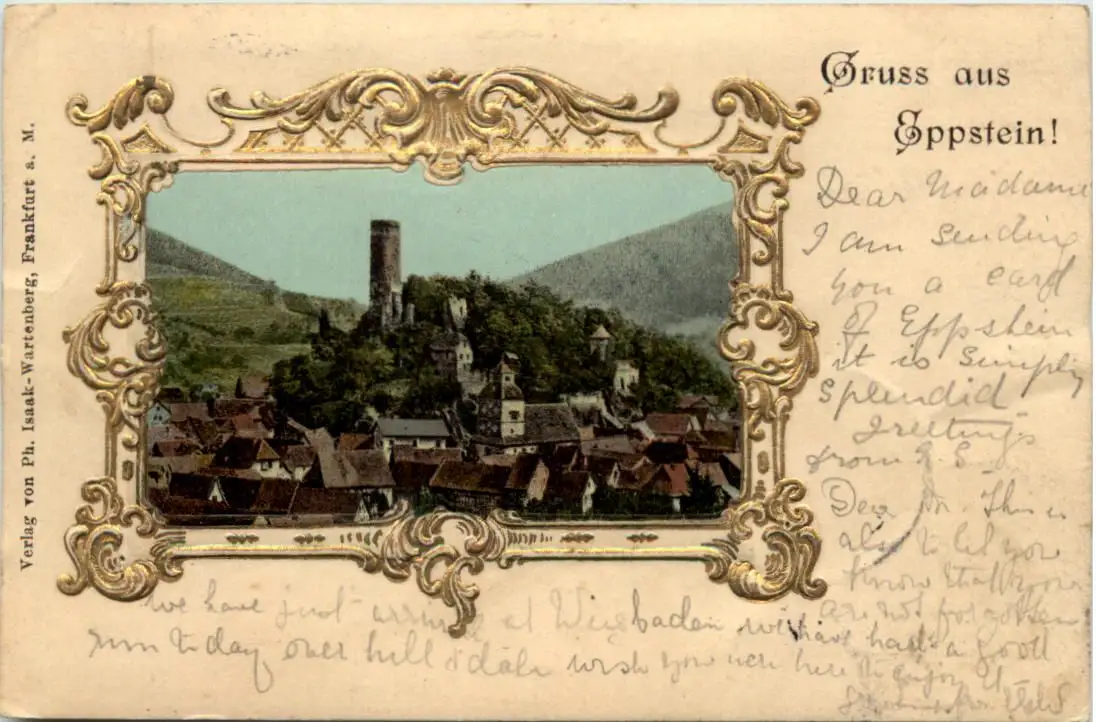 Gruss aus
Eppstein!
Verlag von Ph. Isaak-Wartenberg, Frankfurt a. M.
Dear Madame
I am sending
you a card
of Eppstein
it is simply
splendid
Greetings
from
Dear This is
also to let you
know that you
are not forgotten
we have just arrived at Wiesbaden we have had a good
run to day over hill & dale wish you were here to enjoy it